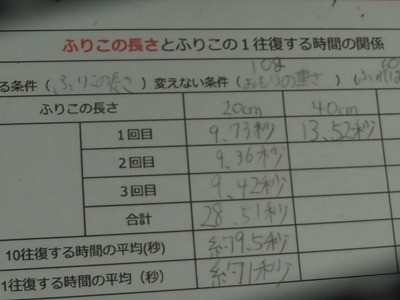 ふりこの長さとふりこの1往復する時間の関係
10g 60
る条件（ふりこの長さ）変えない条件（おもりの重さ）（ふれは
ふりこの長さ 20cm 40cm
1回目 9.73秒 13.52秒
2回目 9.36秒
3回目 9.42秒
合計 28.51秒
10往復する時間の平均(秒) 約9.5秒
1往復する時間の平均（秒）